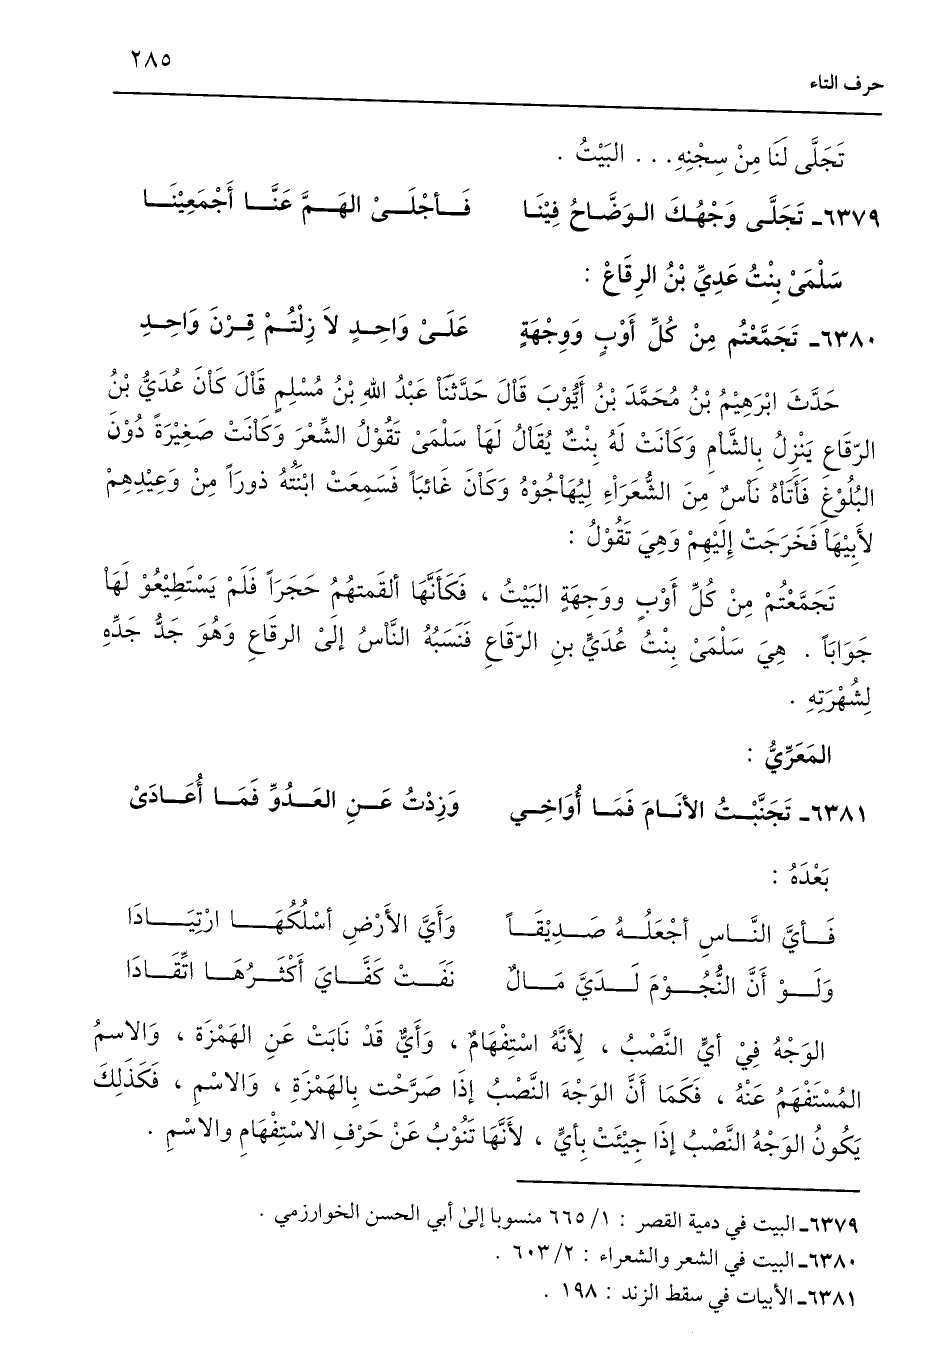 ٢٨٥
حرف التاء
تَجَلَّى لَنَا مِنْ سِجْنِهِ... البَيْتُ .
٦٣٧٩ـ تَجَلَّى وَجْهُكَ الوَضَّاحُ فِيْنَا فَأَجْلَىْ الهَمَّ عَنَّا أَجْمَعِيْنَا
سَلْمَىْ بِنْتُ عَدِيِّ بْنُ الرِقَاعْ :
٦٣٨٠ـ تَجَمَّعْتُم مِنْ كُلِّ أَوْبٍ وَوِجْهَةٍ عَلَىْ وَاحِدٍ لاَ زِلْتُمْ قِرْنَ وَاحِدِ
حَدَّثَ ابْرَهِيْمُ بْنُ مُحَمَّدَ بْنُ أَيُّوْبَ قَالَ حَدَّثَنَاْ عَبْدُ اللهِ بْنُ مُسْلِمٍ قَالَ كَاْنَ عُدَيُّ بْنُ
الرّقَاعِ يَنْزِلُ بِالشَّامِ وَكَانَتْ لَهُ بِنْتٌ يُقَاْلُ لَهَا سَلْمَىْ تَقُوْلُ الشِّعْرَ وَكَانَتْ صَغِيْرَةً دُوْنَ
البُلُوْغِ فَأَتَاْهُ نَاْسٌ مِنَ الشُّعَرَاْءِ لِيُهَاْجُوْهُ وَكَاْنَ غَائِبَاً فَسَمِعَتْ ابْنَتُهُ ذوراً مِنْ وَعِيْدِهِمْ
لأَبِيْهَاْ فَخَرَجَتْ إِلَيْهِمْ وَهِيَ تَقُوْلُ :
تَجَمَّعْتُمْ مِنْ كُلِّ أَوْبٍ ووِجهَةٍ البَيْتُ ، فَكَأَنَّهَا ألقمتهُمْ حَجَرَاً فَلَمْ يَسْتَطِيْعُوْ لَهَا
جَوَابَاً . هِيَ سَلْمَىْ بِنْتُ عُدَيٍّ بنِ الرّقَاعِ فَنَسَبُهُ النَّاْسُ إلَىْ الرِقَاعِ وَهُوَ جَدُّ جَدِّهِ
لِشُهْرَتِهِ .
المَعَرِّيُّ :
٦٣٨١ـ تَجَنَّبْتُ الأنَامَ فَمَا أُوَاخِي وَزِدْتُ عَنِ العَدُوِّ فَمَا أُعَادَىْ
بَعْدَهُ :
فَأيَّ النَّاسِ أجْعَلُهُ صَدِيْقَاً وَأَيَّ الأَرْضِ أسْلُكُهَا ارْتِيَادَا
وَلَوْ أَنَّ النُّجُوْمَ لَدَيَّ مَالٌ نَفَتْ كَفَّايَ أَكْثَرُهَا اتِّقَادَا
الوَجْهُ فِيْ أيٍّ النَّصْبُ ، لِأنَّهُ اسْتِفْهَامٌ ، وَأيٌّ قَدْ نَابَتْ عَنِ الهَمْزَة ، وَالاسمُ
المُسْتَفْهَمُ عَنْهُ ، فَكَمَا أنَّ الوَجْهَ النَّصْبُ إذَا صَرَّحْت بِالهَمْزَةِ ، وَالاسْمِ ، فَكَذَلِكَ
يَكُونُ الوَجْهُ النَّصْبُ إذَا جِيْئَتْ بِأيٍّ ، لأَنَّهَا تَنُوْبُ عَنْ حَرْفِ الاسْتِفْهَامِ والاسْمِ .
٦٣٧٩ـ البيت في دمية القصر : ١/ ٦٦٥ منسوبا إلىٰ أبي الحسن الخوارزمي .
٦٣٨٠ـ البيت في الشعر والشعراء : ٢/ ٦٠٣ .
٦٣٨١ـ الأبيات في سقط الزند : ١٩٨ .